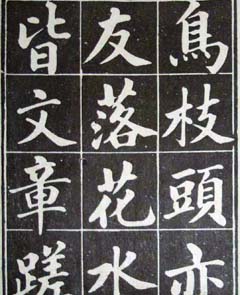 鳥枝頭亦
友落花水
皆文章蹉